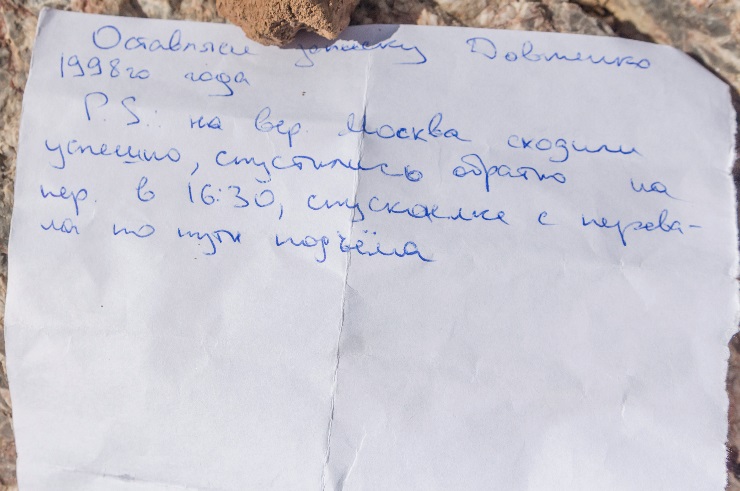 Оставляем записку Довженко
1998го года
P.S.: на вер. Москва сходили
успешно, спустились обратно на
пер. в 16:30, спускаемся с перева-
ла по пути подъёма